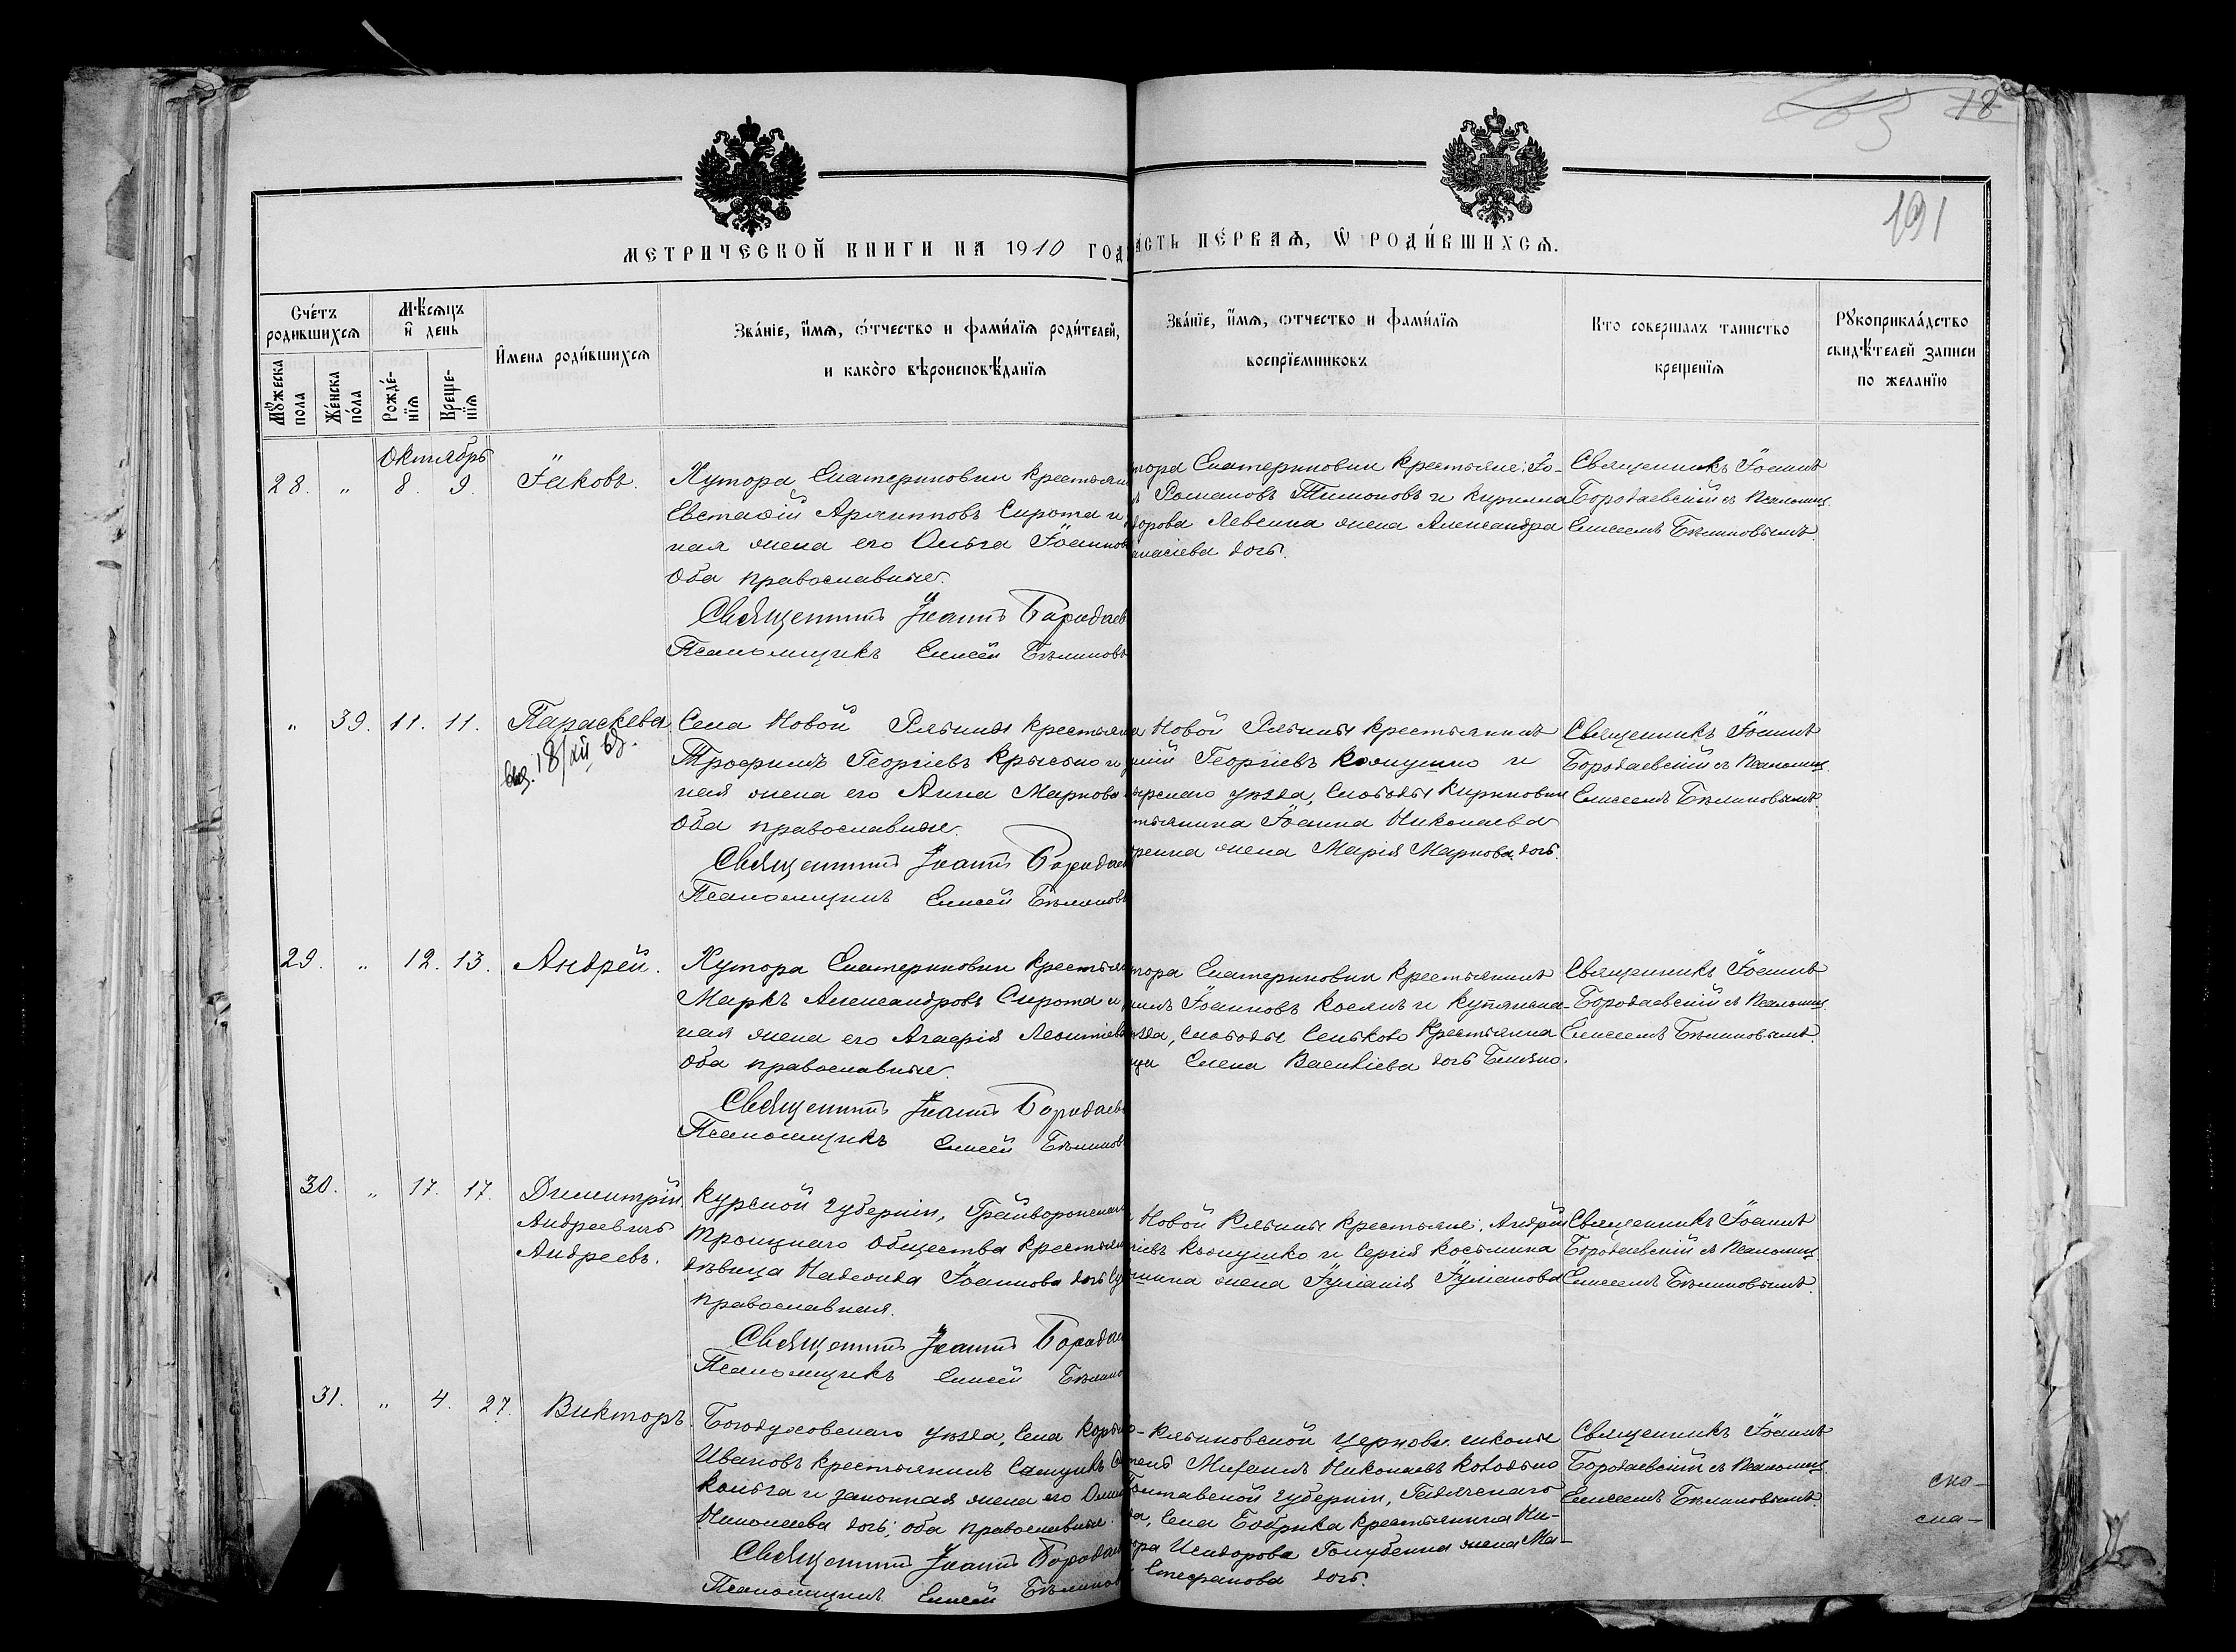 18
191
МЕТРИЧЕСКОЙ КНИГИ НА 1910 ГОД
АСТЬ ПЕРВАЯ, Ѡ РОДИВШИХСЯ.
Счетъ родившихся
Мѣсяцъ и день
Мужеска пола
Женска пола
Рожденія
Крещенія
Имена родившихся
Званіе, имя, отчество и фамилія родителей,
и какого вѣроисповѣданія
Званіе, имя, отчество и фамилія
воспріемниковъ
Кто совершалъ таинство
крещенія
Рукоприкладство
свидѣтелей записи
по желанію
Октябрь
28. " 8. 9. Іаковъ.
Хутора Екатериновки крестьян
Евстафій Архипповъ Сирота и
ная жена его Ольга Іоаннов
Оба православные.
Священникъ Іоаннъ Бородаев
Псаломщикъ Елисей Бѣлиновъ
тора Екатериновки крестьяне: Іо-
Романовъ Тимоновъ и Кирилла
дорова Левкина жена Александра
анасіева дочь.
Священникъ Іоаннъ
Бородаевскій съ Псаломщ.
Елисеемъ Бѣлиновымъ.
" 39. 11. 11. Параскева
18/XII
Села Новой Рябины крестьян
Трофимъ Георгіевъ и
ная жена его Анна Маркова
Оба православные.
Священникъ Іоаннъ Бородаев
Псаломщикъ Елисей Бѣлиновъ
а Новой Рябины крестьянинъ
Георгіевъ Клочко и
ырскаго уѣзда, Слободы Кириковки
тьянина Іоанна Николаева
женка жена Марія Маркова дочь.
Священникъ Іоаннъ
Бородаевскій съ Псаломщ.
Елисеемъ Бѣлиновымъ.
29. " 12. 13. Андрей.
Хутора Екатериновки крестьян
Маркъ Александровъ Сирота и
ная жена его Агафія Леонтіева
Оба православные.
Священникъ Іоаннъ Бородаев
Псаломщикъ Елисей Бѣлинов
тора Екатериновки крестьянинъ
Іоанновъ и Купянска-
ѣзда, слободы Сеньково крестьянка
ица Елена Васильева дочь
Священникъ Іоаннъ
Бородаевскій съ Псаломщ.
Елисеемъ Бѣлиновымъ.
30. " 17. 17. Димитрій
Андреевичъ
Андреевъ.
Курской губерніи, Грайворонскаго
Троицкаго Общества крестьян
дѣвица Надежда Іоаннова дочь
православная.
Священникъ Іоаннъ Борода
Псаломщикъ Елисей Бѣлино
Новой Рябины крестьяне: Андрей
гіевъ и Сергія Косьмина
жена Іуліанія Іуліанова
Священникъ Іоаннъ
Бородаевскій съ Псаломщ.
Елисеемъ Бѣлиновымъ.
31. " 4. 27. Викторъ.
Богодуховскаго уѣзда, Села
Ивановъ крестьянинъ
и законная жена его
Николаева дочь; оба православные.
Священникъ Іоаннъ Борода
Псаломщикъ Елисей Бѣлинов
-Рябиновской церковн. школы
тель Михаилъ Николаевъ Колодько
Полтавской губерніи, Гадячскаго
да, Села Бобрика крестьянина Ни-
ора Исидорова Голубенка жена Ма-
Стефанова дочь.
Священникъ Іоаннъ
Бородаевскій съ Псаломщ.
Елисеемъ Бѣлиновымъ.